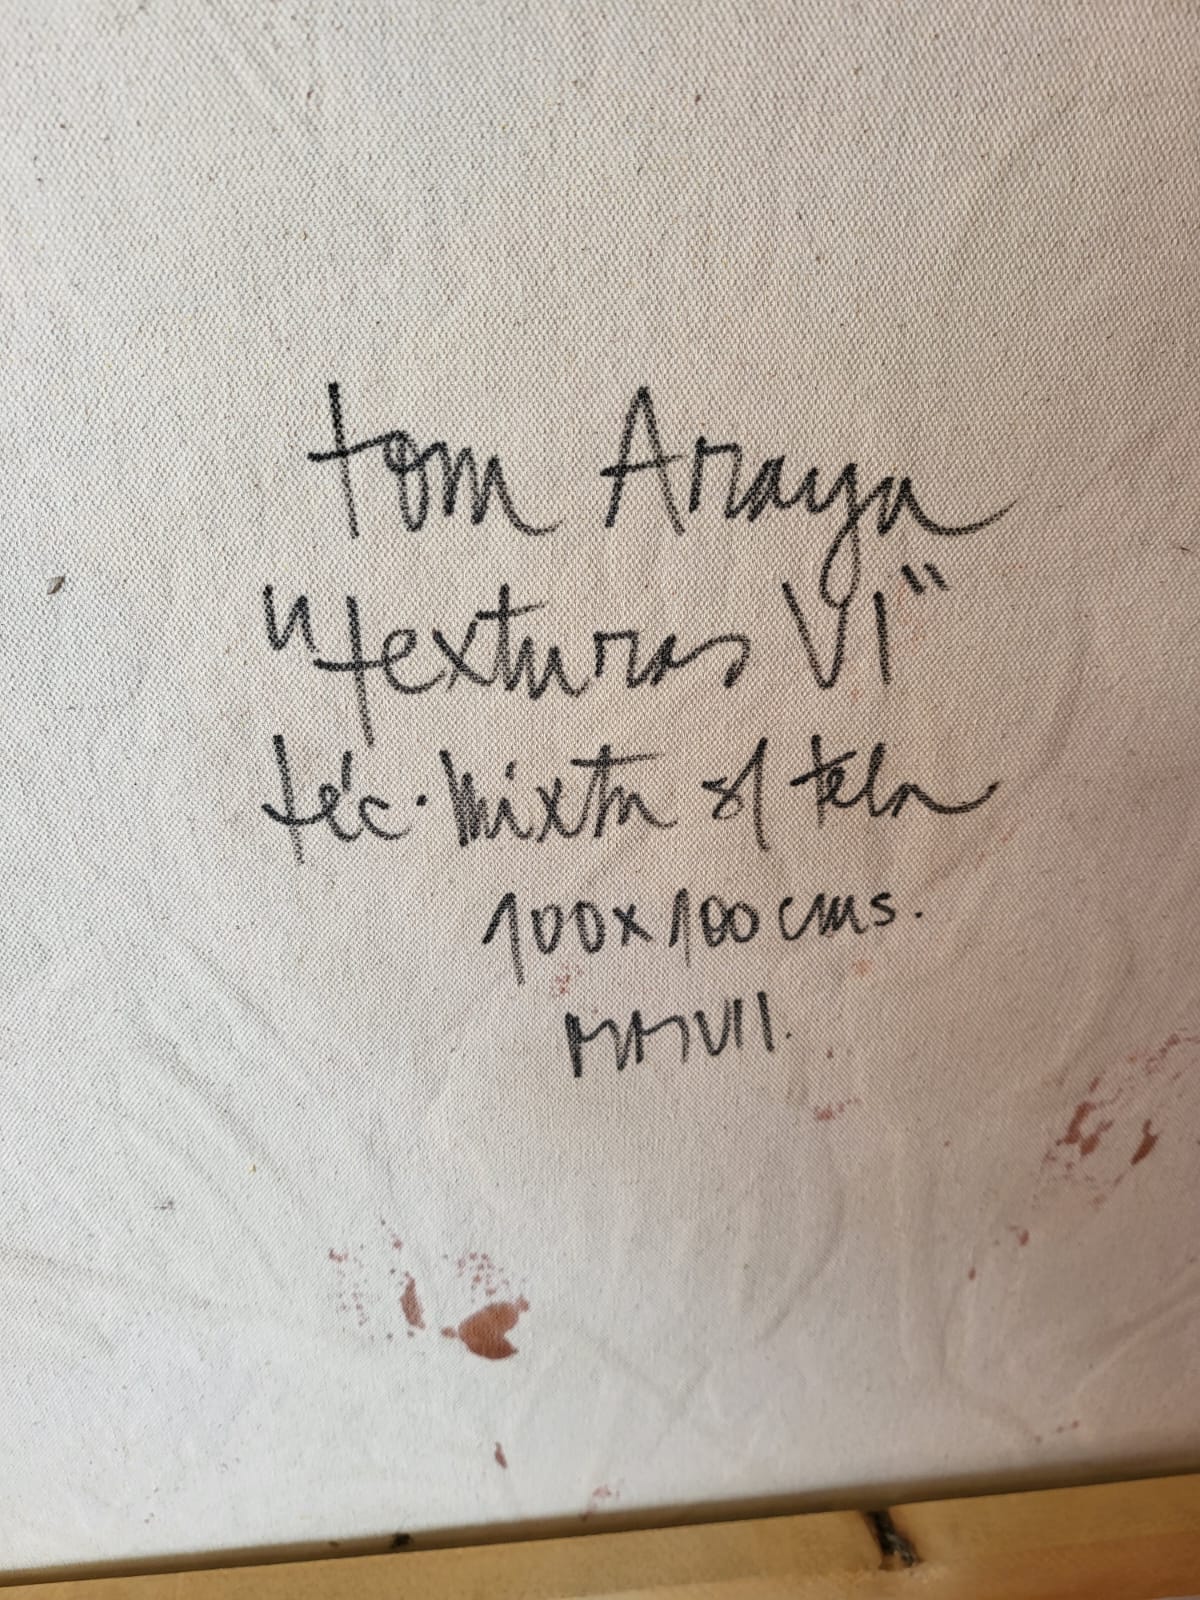 tom Araya
"texturas VI"
téc. mixta s/ tela
100x100 cms.
MMVII.